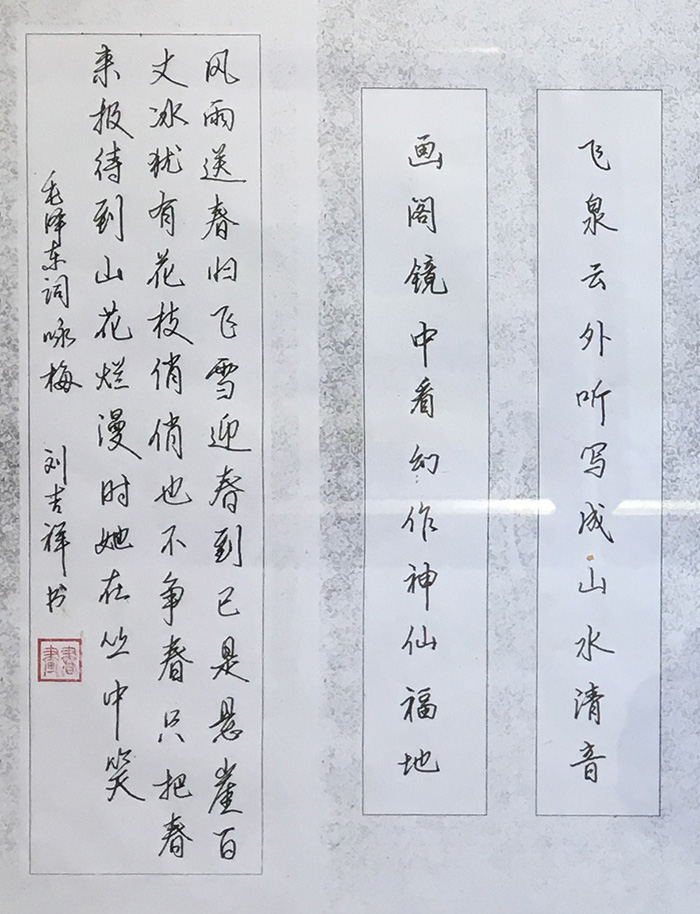 飞泉云外听写成山水清音
画阁镜中看幻作神仙福地
风雨送春归飞雪迎春到已是悬崖百
丈冰犹有花枝俏俏也不争春只把春
来报待到山花烂漫时她在丛中笑
毛泽东词咏梅 刘吉祥书